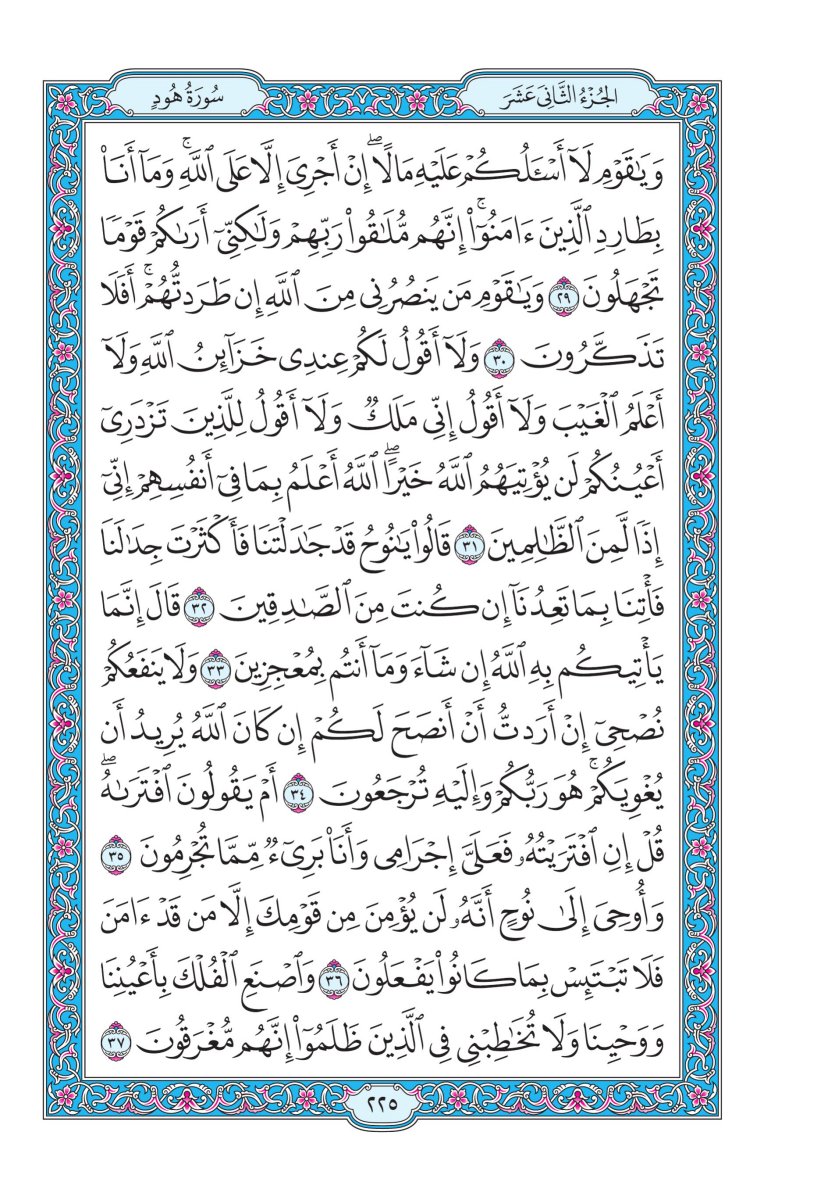 الجُزْءُ الثَّانِي عَشَرَ
سُورَةُ هُودٍ
وَيَٰقَوْمِ لَآ أَسْـَٔلُكُمْ عَلَيْهِ مَالًاۖ إِنْ أَجْرِىَ إِلَّا عَلَى ٱللَّهِۚ وَمَآ أَنَا۠
بِطَارِدِ ٱلَّذِينَ ءَامَنُوٓا۟ۚ إِنَّهُم مُّلَٰقُوا۟ رَبِّهِمْ وَلَٰكِنِّىٓ أَرَىٰكُمْ قَوْمًا
تَجْهَلُونَ ٢٩ وَيَٰقَوْمِ مَن يَنصُرُنِى مِنَ ٱللَّهِ إِن طَرَدتُّهُمْۚ أَفَلَا
تَذَكَّرُونَ ٣٠ وَلَآ أَقُولُ لَكُمْ عِندِى خَزَآئِنُ ٱللَّهِ وَلَآ
أَعْلَمُ ٱلْغَيْبَ وَلَآ أَقُولُ إِنِّى مَلَكٌ وَلَآ أَقُولُ لِلَّذِينَ تَزْدَرِىٓ
أَعْيُنُكُمْ لَن يُؤْتِيَهُمُ ٱللَّهُ خَيْرًاۖ ٱللَّهُ أَعْلَمُ بِمَا فِىٓ أَنفُسِهِمْ إِنِّىٓ
إِذًا لَّمِنَ ٱلظَّٰلِمِينَ ٣١ قَالُوا۟ يَٰنُوحُ قَدْ جَٰدَلْتَنَا فَأَكْثَرْتَ جِدَٰلَنَا
فَأْتِنَا بِمَا تَعِدُنَآ إِن كُنتَ مِنَ ٱلصَّٰدِقِينَ ٣٢ قَالَ إِنَّمَا
يَأْتِيكُم بِهِ ٱللَّهُ إِن شَآءَ وَمَآ أَنتُم بِمُعْجِزِينَ ٣٣ وَلَا يَنفَعُكُمْ
نُصْحِىٓ إِنْ أَرَدتُّ أَنْ أَنصَحَ لَكُمْ إِن كَانَ ٱللَّهُ يُرِيدُ أَن
يُغْوِيَكُمْۚ هُوَ رَبُّكُمْ وَإِلَيْهِ تُرْجَعُونَ ٣٤ أَمْ يَقُولُونَ ٱفْتَرَىٰهُۖ
قُلْ إِنِ ٱفْتَرَيْتُهُۥ فَعَلَىَّ إِجْرَامِى وَأَنَا۠ بَرِىٓءٌ مِّمَّا تُجْرِمُونَ ٣٥
وَأُوحِىَ إِلَىٰ نُوحٍ أَنَّهُۥ لَن يُؤْمِنَ مِن قَوْمِكَ إِلَّا مَن قَدْ ءَامَنَ
فَلَا تَبْتَئِسْ بِمَا كَانُوا۟ يَفْعَلُونَ ٣٦ وَٱصْنَعِ ٱلْفُلْكَ بِأَعْيُنِنَا
وَوَحْيِنَا وَلَا تُخَٰطِبْنِى فِى ٱلَّذِينَ ظَلَمُوٓا۟ إِنَّهُم مُّغْرَقُونَ ٣٧
٢٢٥